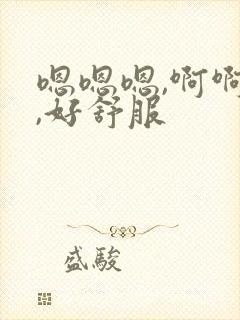 嗯嗯嗯,啊啊
,好舒服
盛駿